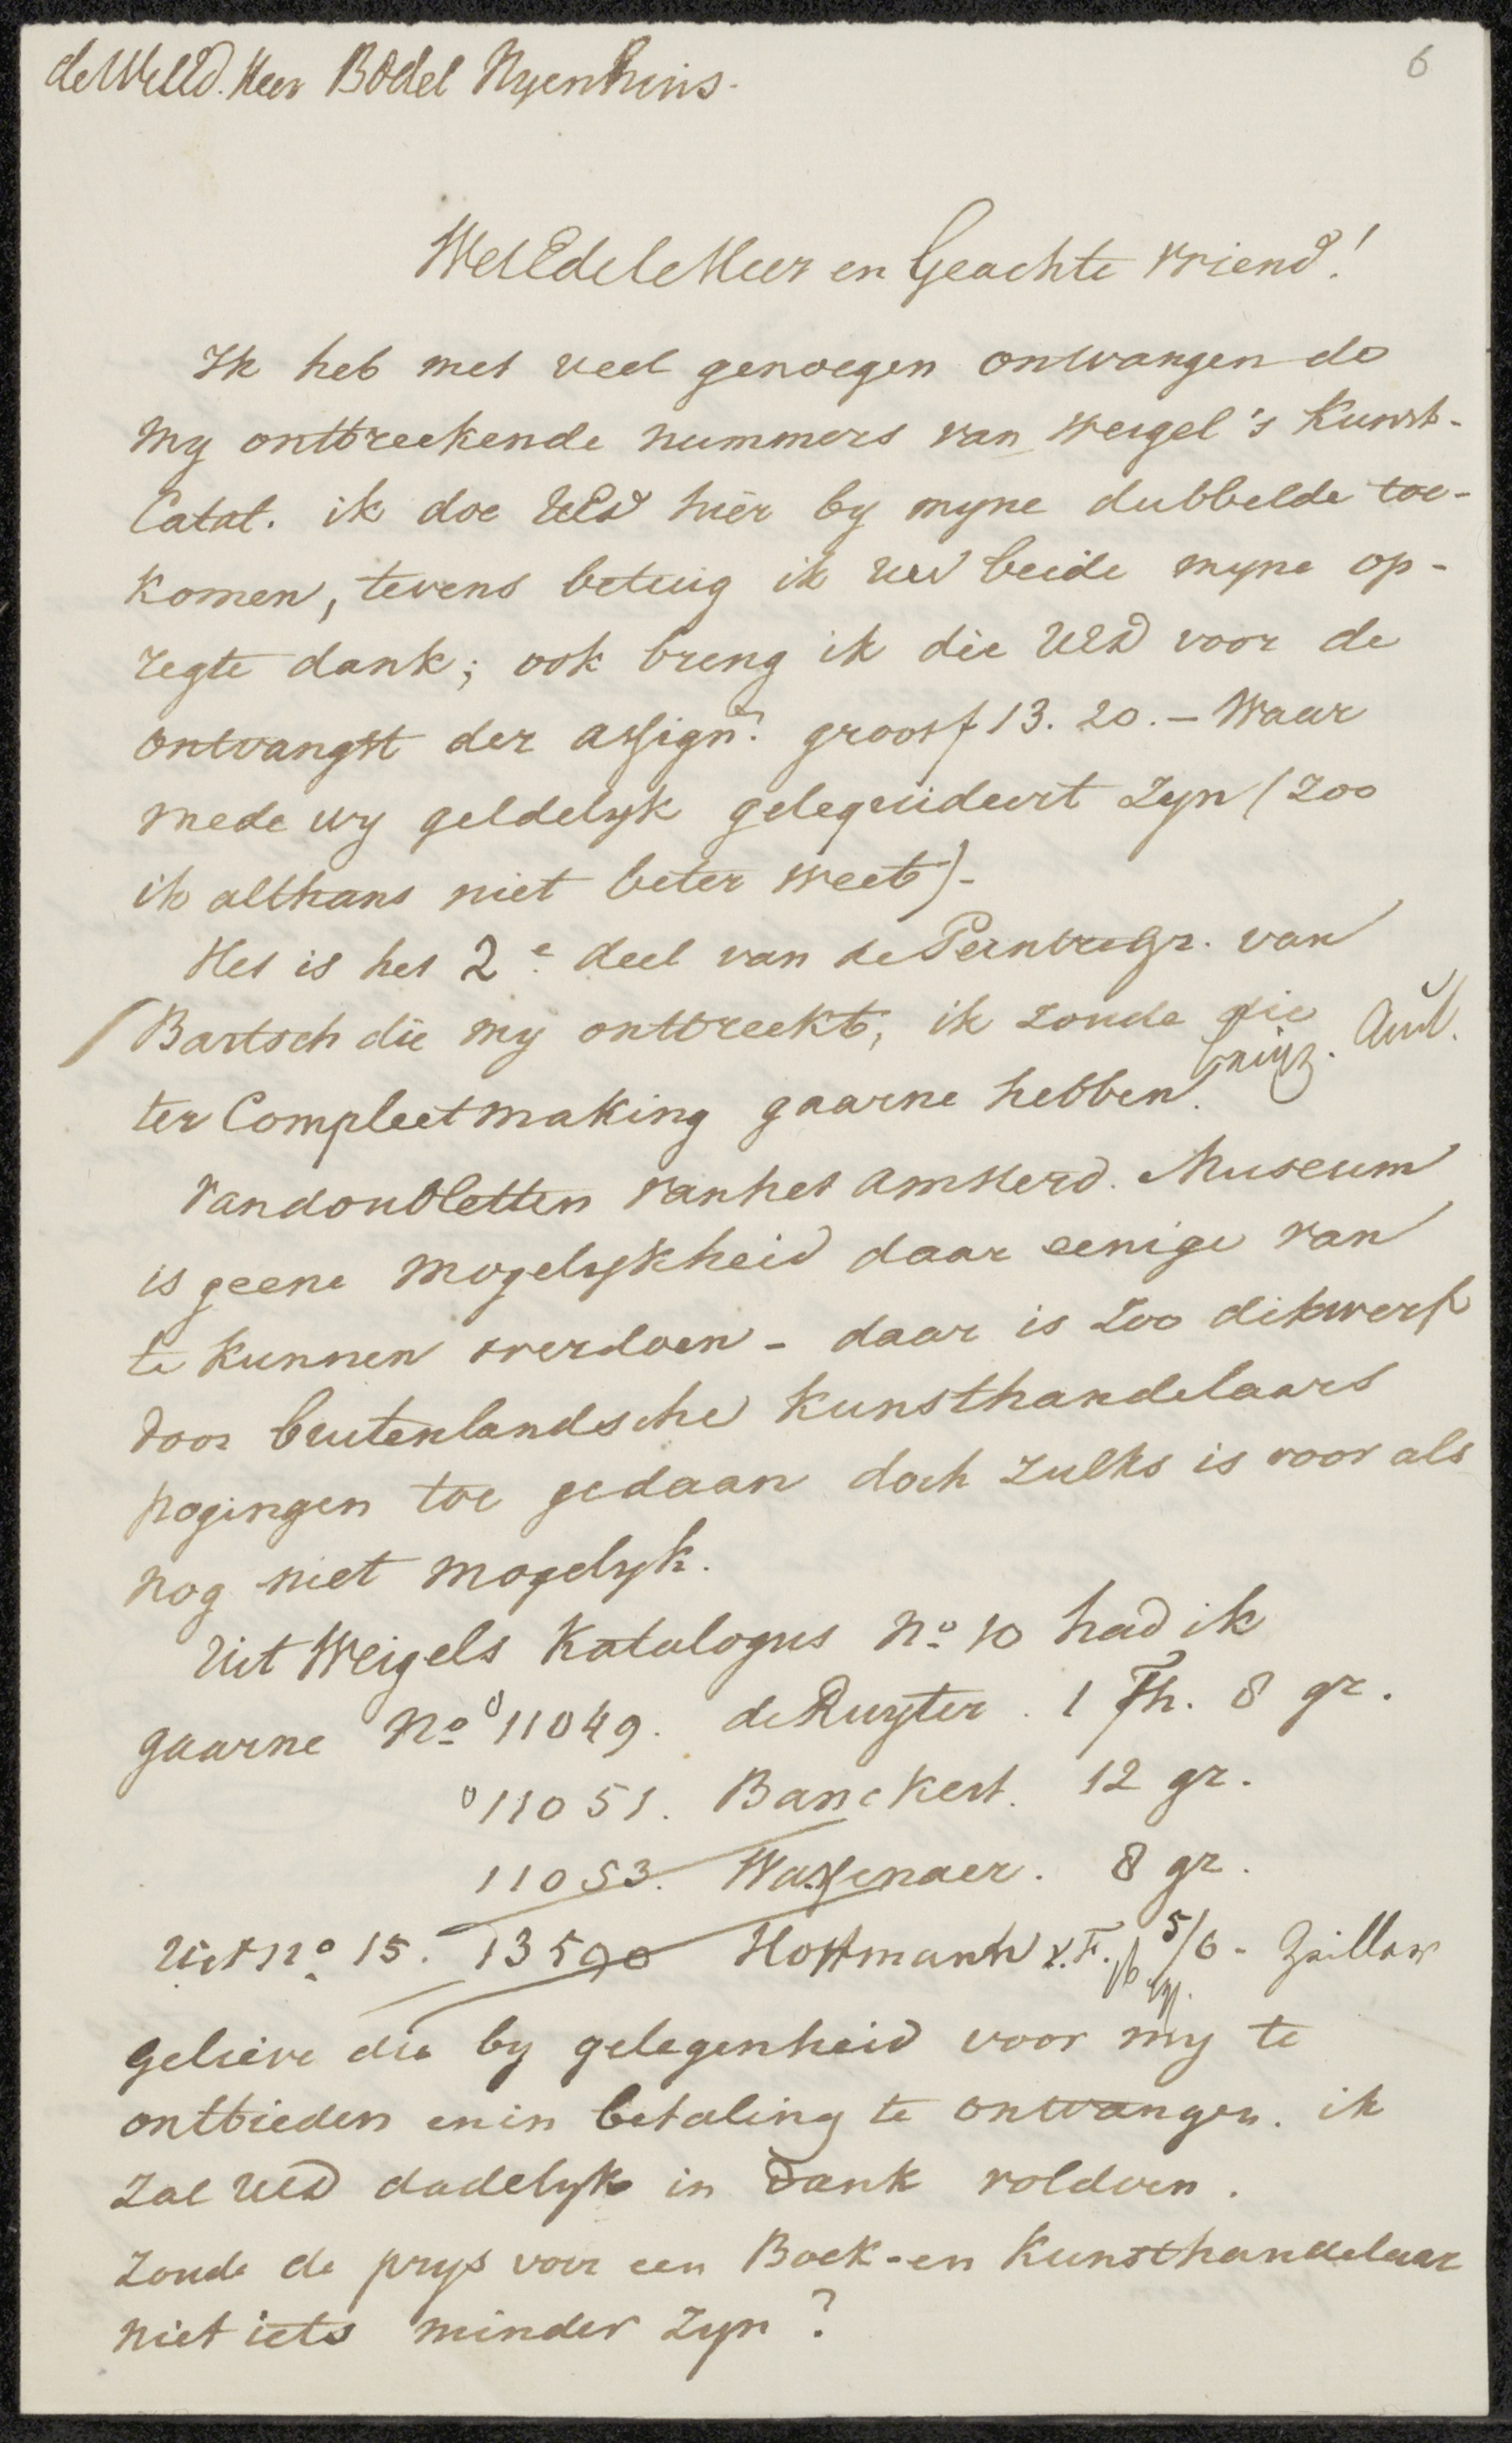 de WelEd. Heer Bodel Nyenhuis.
6
WelEdele Heer en Geachte Vriend!
Ik heb met veel genoegen ontvangen de
my ontbreekende nummers van Weigel's Kunst-
Catal. ik doe UEd hier by myne dubbelde toe-
komen, tevens betuig ik UEd beide myne op-
regte dank; ook breng ik die UEd voor de
ontvangst der assign. groot f 13.20. – Waar
mede wy geldelyk gelequideert zyn (zoo
ik althans niet beter weet).
Het is het 2e deel van de Peintre Gr. van
Bartsch die my ontbreekt, ik zoude die
ter Compleetmaking gaarne hebben.
Van doubletten van het Amsterd. Museum
is geene mogelykheid daar eenige van
te kunnen overdoen – daar is zoo dikwerf
door buitenlandsche Kunsthandelaars
pogingen toe gedaan doch zulks is voor als
nog niet mogelyk.
Uit Weigels Katalogus No 10 had ik
gaarne No 11049. de Ruyter. 1 Th. 8 gr.
11051. Banckert. 12 gr.
11053. Wassenaer. 8 gr.
Uit No 15. 13590 Hoffmann 5/6 -
gelieve die by gelegenheid voor my te
ontbieden en in betaling te ontvangen. ik
zal UEd dadelyk in dank voldoen.
Zoude de prys voor een Boek- en Kunsthandelaar
niet iets minder zyn?